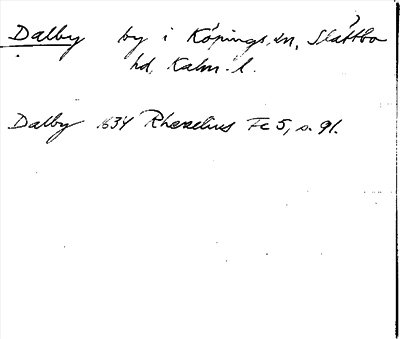 Dalby by i Köpings sn, Slättbo
hd, Kalm. l.
Dalby 1634 Rhezelius Fc 5, s. 91.